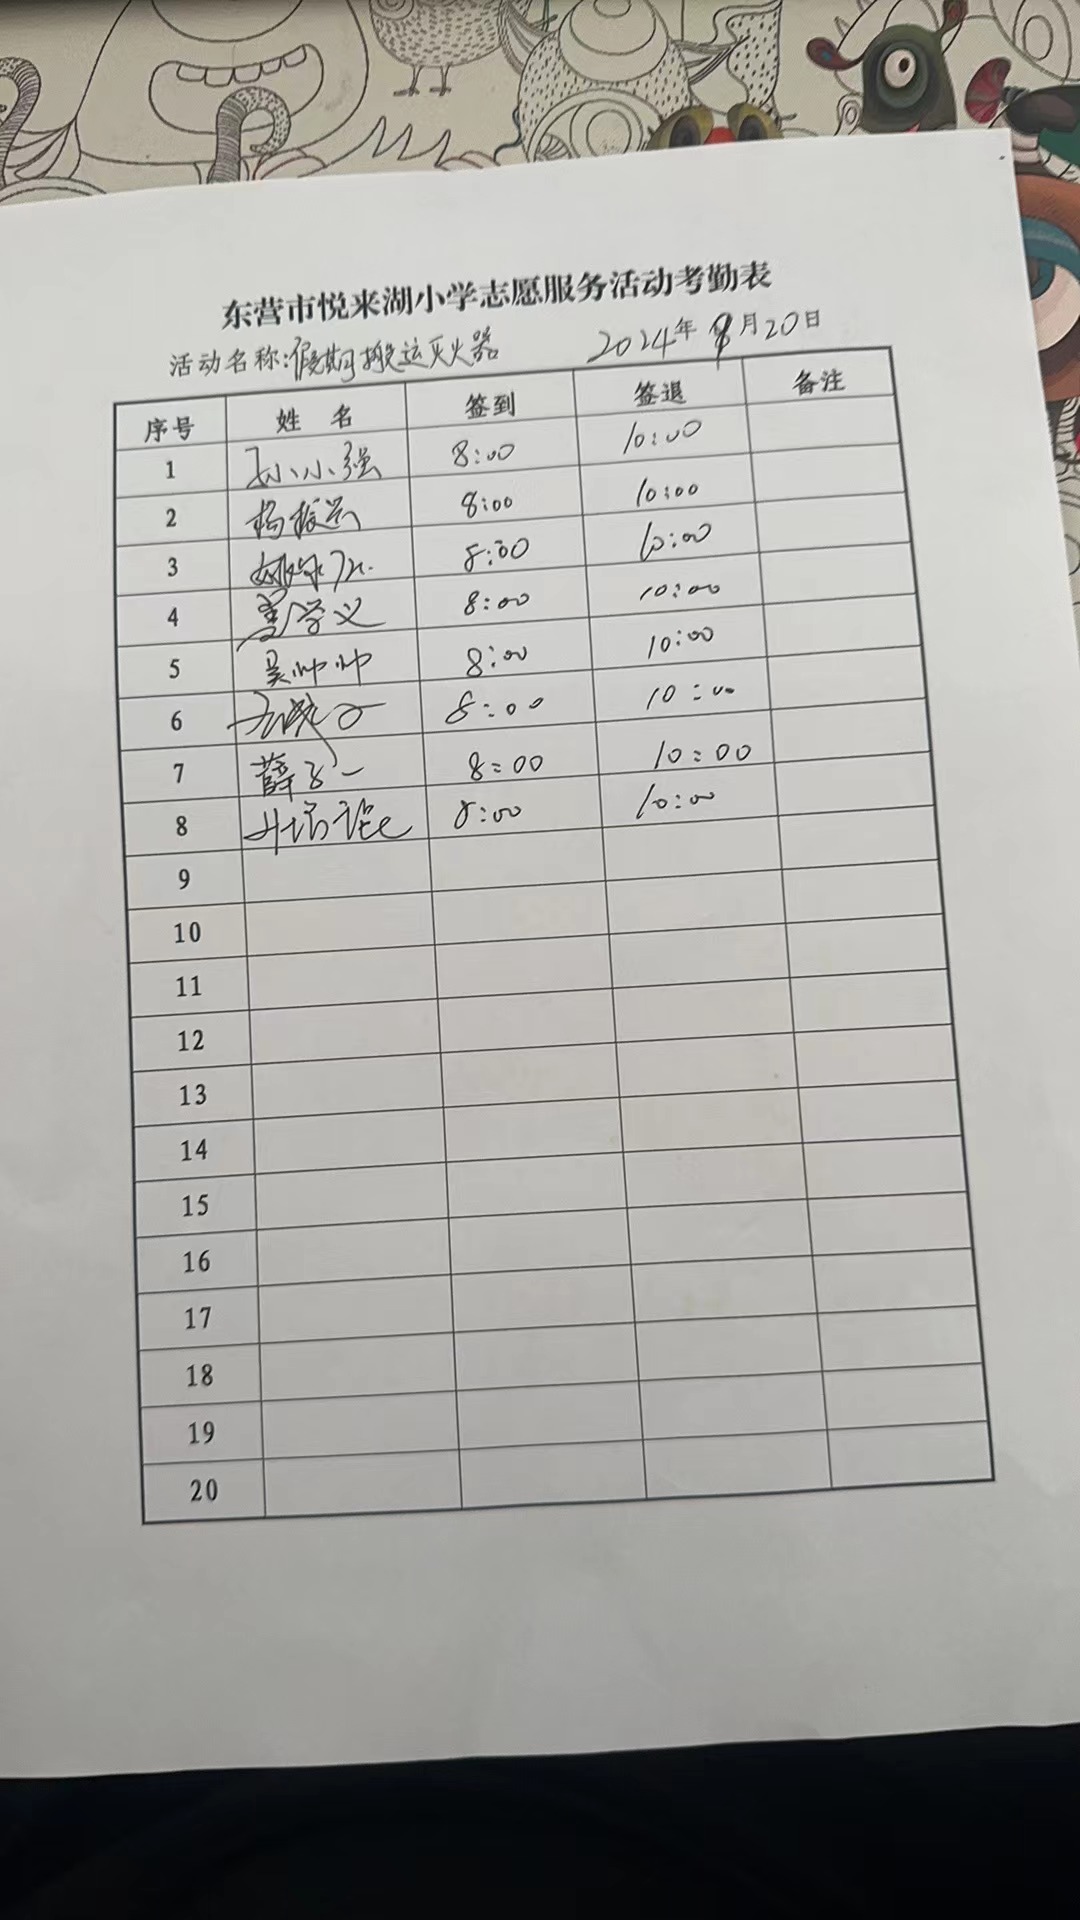 东营市悦来湖小学志愿服务活动考勤表
活动名称:假期搬运灭火器 2024年 月20日
序号 姓 名 签到 签退 备注
1 孙小强 8:00 10:00
2 杨 8:00 10:00
3 8:00 10:00
4 学义 8:00 10:00
5 吴帅帅 8:00 10:00
6 8:00 10:00
7 薛 一 8:00 10:00
8 8:00 10:00
9
10
11
12
13
14
15
16
17
18
19
20